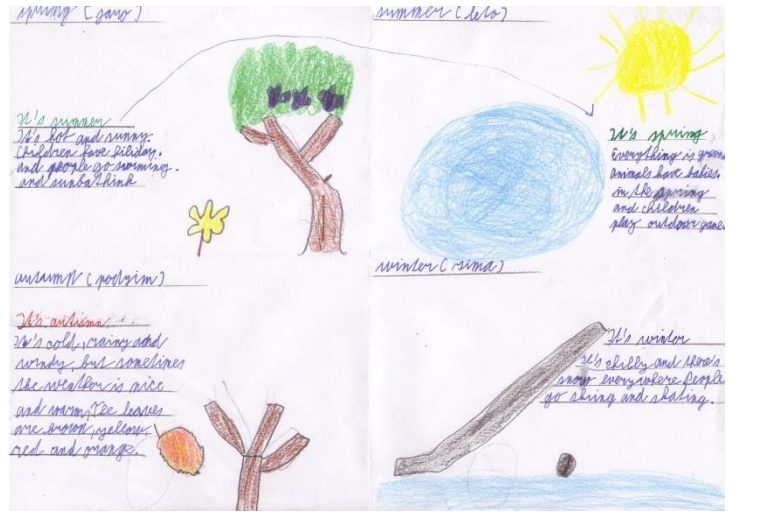 spring (jaro)
It's summer
It's hot and sunny.
Children have hiliday.
and people go swming.
and sunbathink
summer (leto)
It's spring
Everything is green
animals have babies
in the spring
and children
play outdoor games
autumn (podzim)
It's autumn
It's cold, rainy and
windy, but sometimes
the weather is nice
and warm, Tee leaves
are brown, yellow,
red and orange.
winter (zima)
It's winter
It's chilly and there's
snow everywhere People
go skiing and skating.